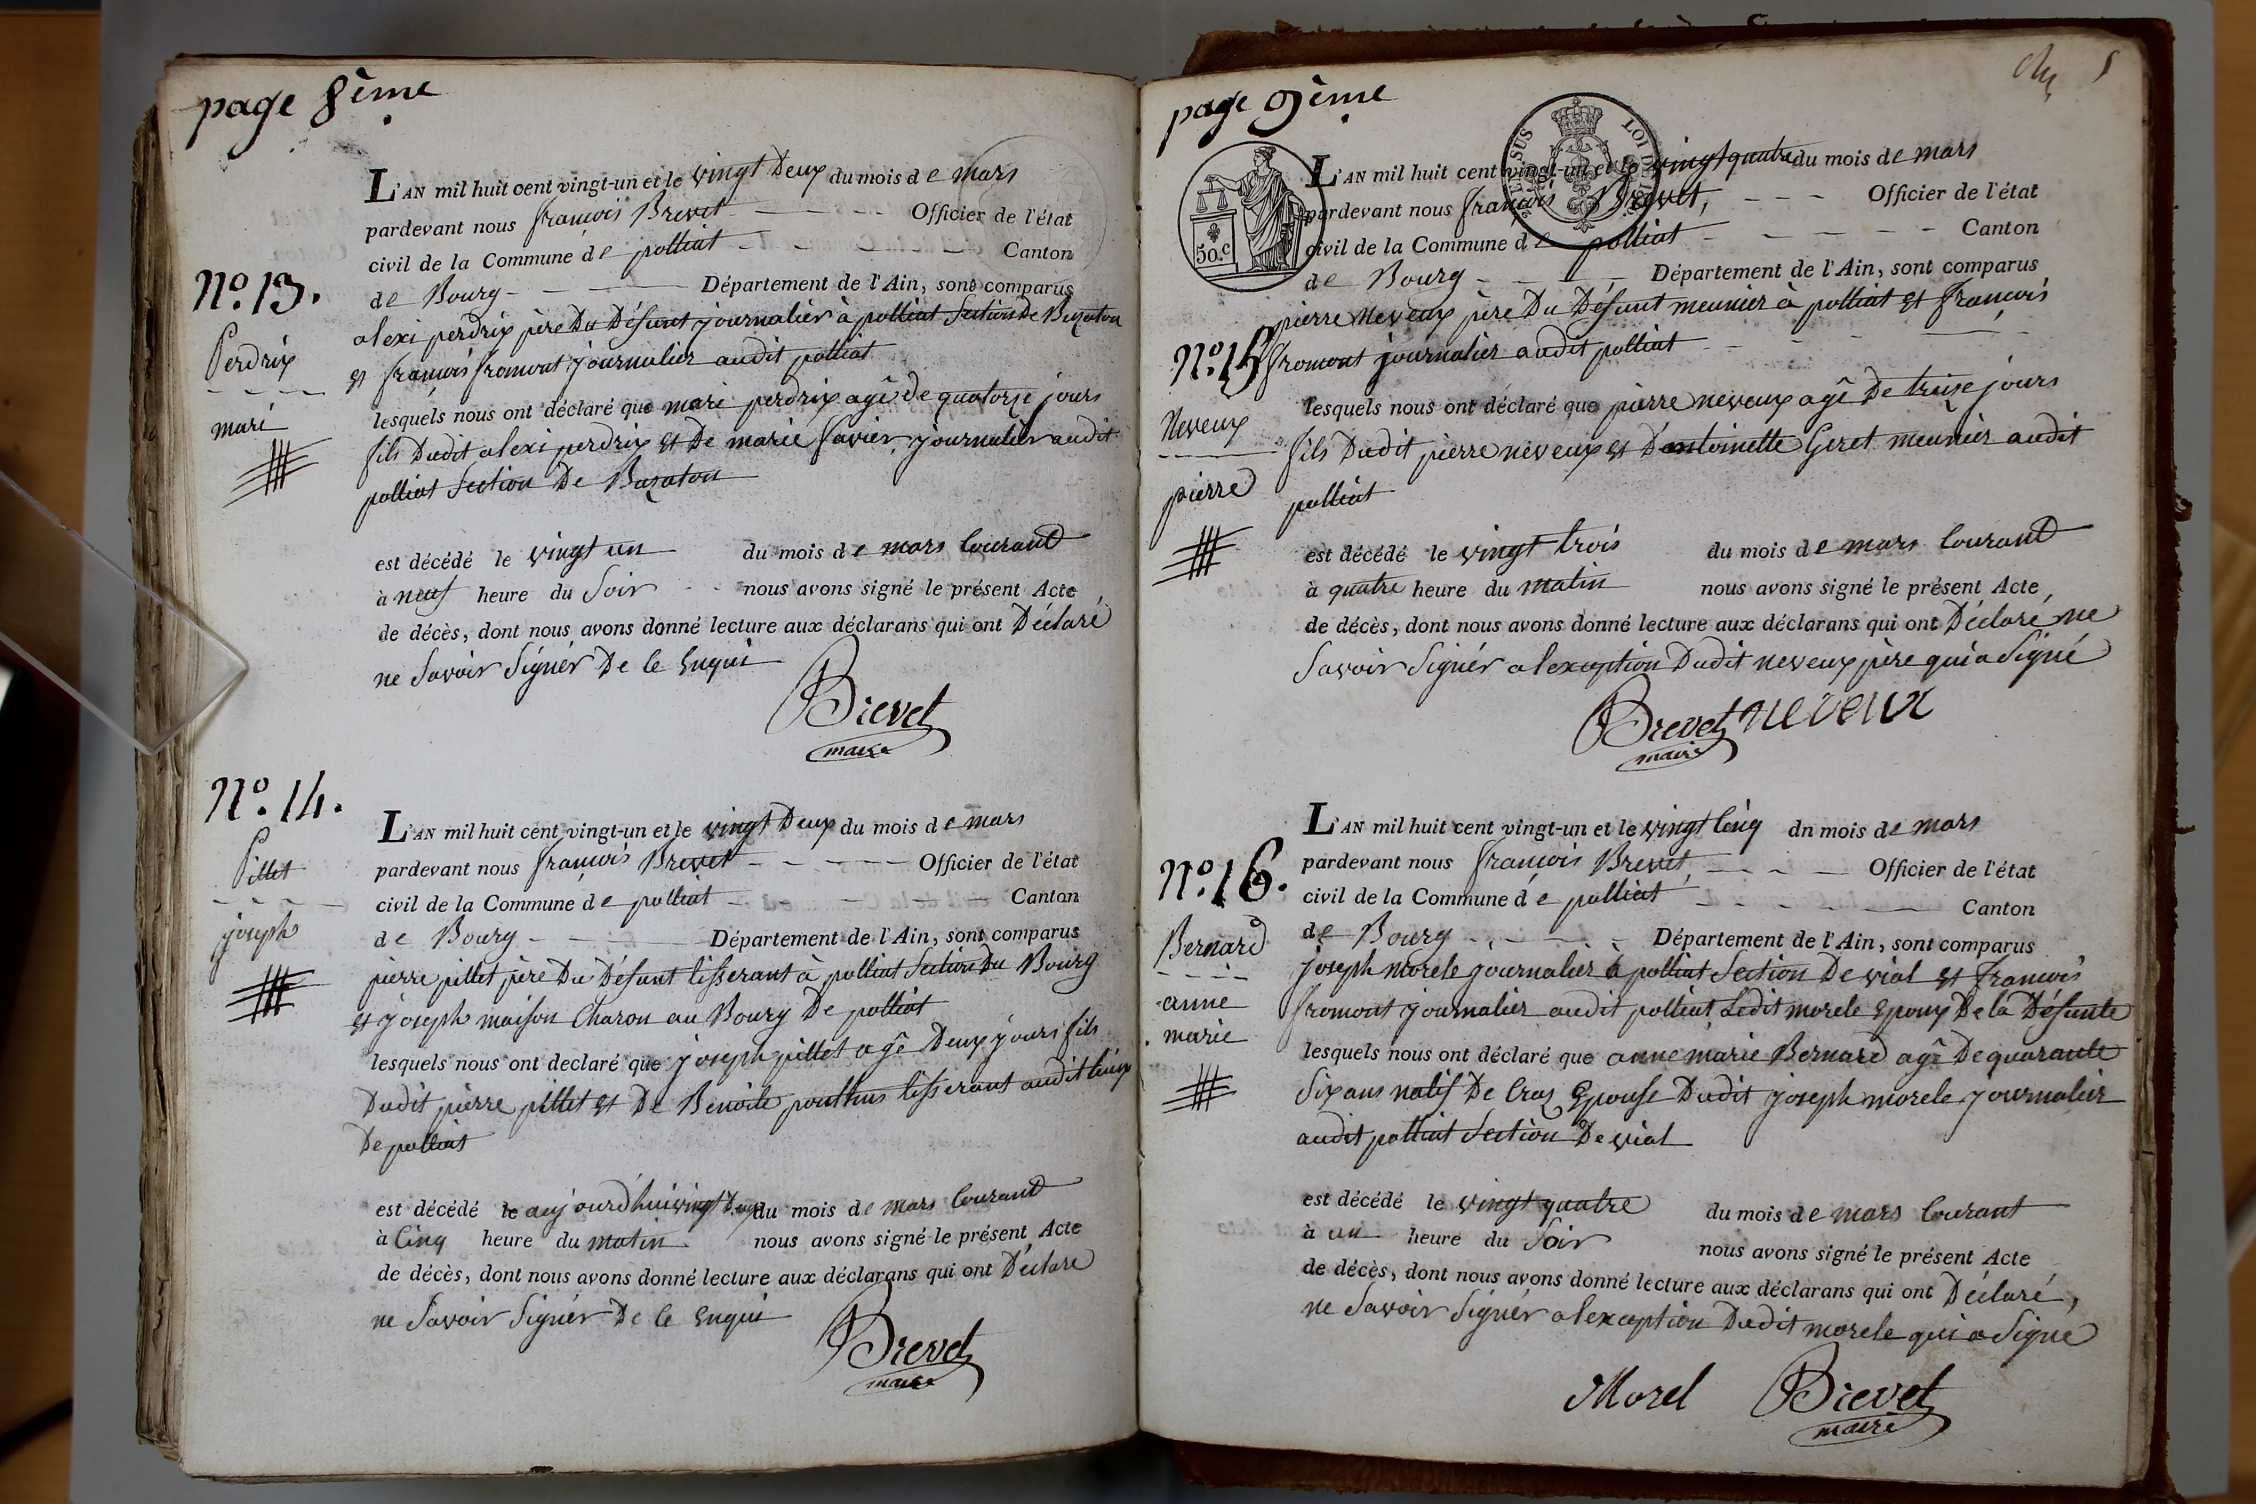 page 8ème
L'AN mil huit cent vingt-un et le vingt Deux du mois de mars
pardevant nous françois Brevet Officier de l'état
civil de la Commune de polliat Canton
No. 13.
de Bourg Département de l'Ain, sont comparus
alexi perdrix père Du Défunt journalier à polliat Section De Buzaton
Perdrix
et françois fromont journalier audit polliat
mari
lesquels nous ont déclaré que mari perdrix agê de quatorze jours
fils Dudit alexi perdrix et De marie favier journalier audit
polliat Section De Buzaton
est décédé le vingt un du mois de mars Courant
à neuf heure du Soir nous avons signé le présent Acte
de décès, dont nous avons donné lecture aux déclarans qui ont Déclaré
ne Savoir Signér De Ce Enquis
Brevet
maire
No. 14.
L'AN mil huit cent vingt-un et le vingt Deux du mois de mars
Pillet
pardevant nous françois Brevet Officier de l'état
civil de la Commune de polliat Canton
joseph
de Bourg Département de l'Ain, sont comparus
pierre pillet père Du Défunt tisserant à polliat Section Du Bourg
et joseph maison Charon au Bourg De polliat
lesquels nous ont declaré que joseph pillet agê Deux jours fils
Dudit pierre pillet et De Benoite ponthus tisserant audit
De polliat
est décédé le aujourd'hui vingt Deux du mois de mars Courant
à Cinq heure du matin nous avons signé le présent Acte
de décès, dont nous avons donné lecture aux déclarans qui ont Déclare
ne Savoir Signér De Ce Enquis
Brevet
maire
5
page 9ème
TIMBRE
LOI DE
50.c
L'AN mil huit cent vingt-un et le vingt quatre du mois de mars
pardevant nous françois Brevet, Officier de l'état
civil de la Commune de polliat Canton
de Bourg Département de l'Ain, sont comparus
pierre neveux père Du Défunt meunier à polliat et françois
No. 15
fromont journalier audit polliat
Neveux
lesquels nous ont déclaré que pierre neveux agê De treise jours
fils Dudit pierre neveux et D'antoinette Geret meunier audit
pierre
polliat
est décédé le vingt trois du mois de mars Courant
à quatre heure du matin nous avons signé le présent Acte
de décès, dont nous avons donné lecture aux déclarans qui ont Déclaré ne
Savoir Signér a lexception Dudit neveux père qui a Signé
Brevet neveux
maire
L'AN mil huit cent vingt-un et le vingt Cinq dn mois de mars
No. 16.
pardevant nous françois Brevet, Officier de l'état
civil de la Commune de polliat Canton
Bernard
de Bourg Département de l'Ain, sont comparus
joseph morele journalier à polliat Section De vial et francois
anne
fromont journalier audit polliat Ledit morele Epoux De la Défunte
marie
lesquels nous ont déclaré que anne marie Bernard agê De quarante
Six ans natif De Cras Epouse Dudit joseph morele journalier
audit polliat Section De vial
est décédé le vingt quatre du mois de mars Courant
à un heure du Soir nous avons signé le présent Acte
de décès, dont nous avons donné lecture aux déclarans qui ont Déclaré,
ne Savoir Signér a lexception Dudit morele qui a Signe
Morel Brevet
maire